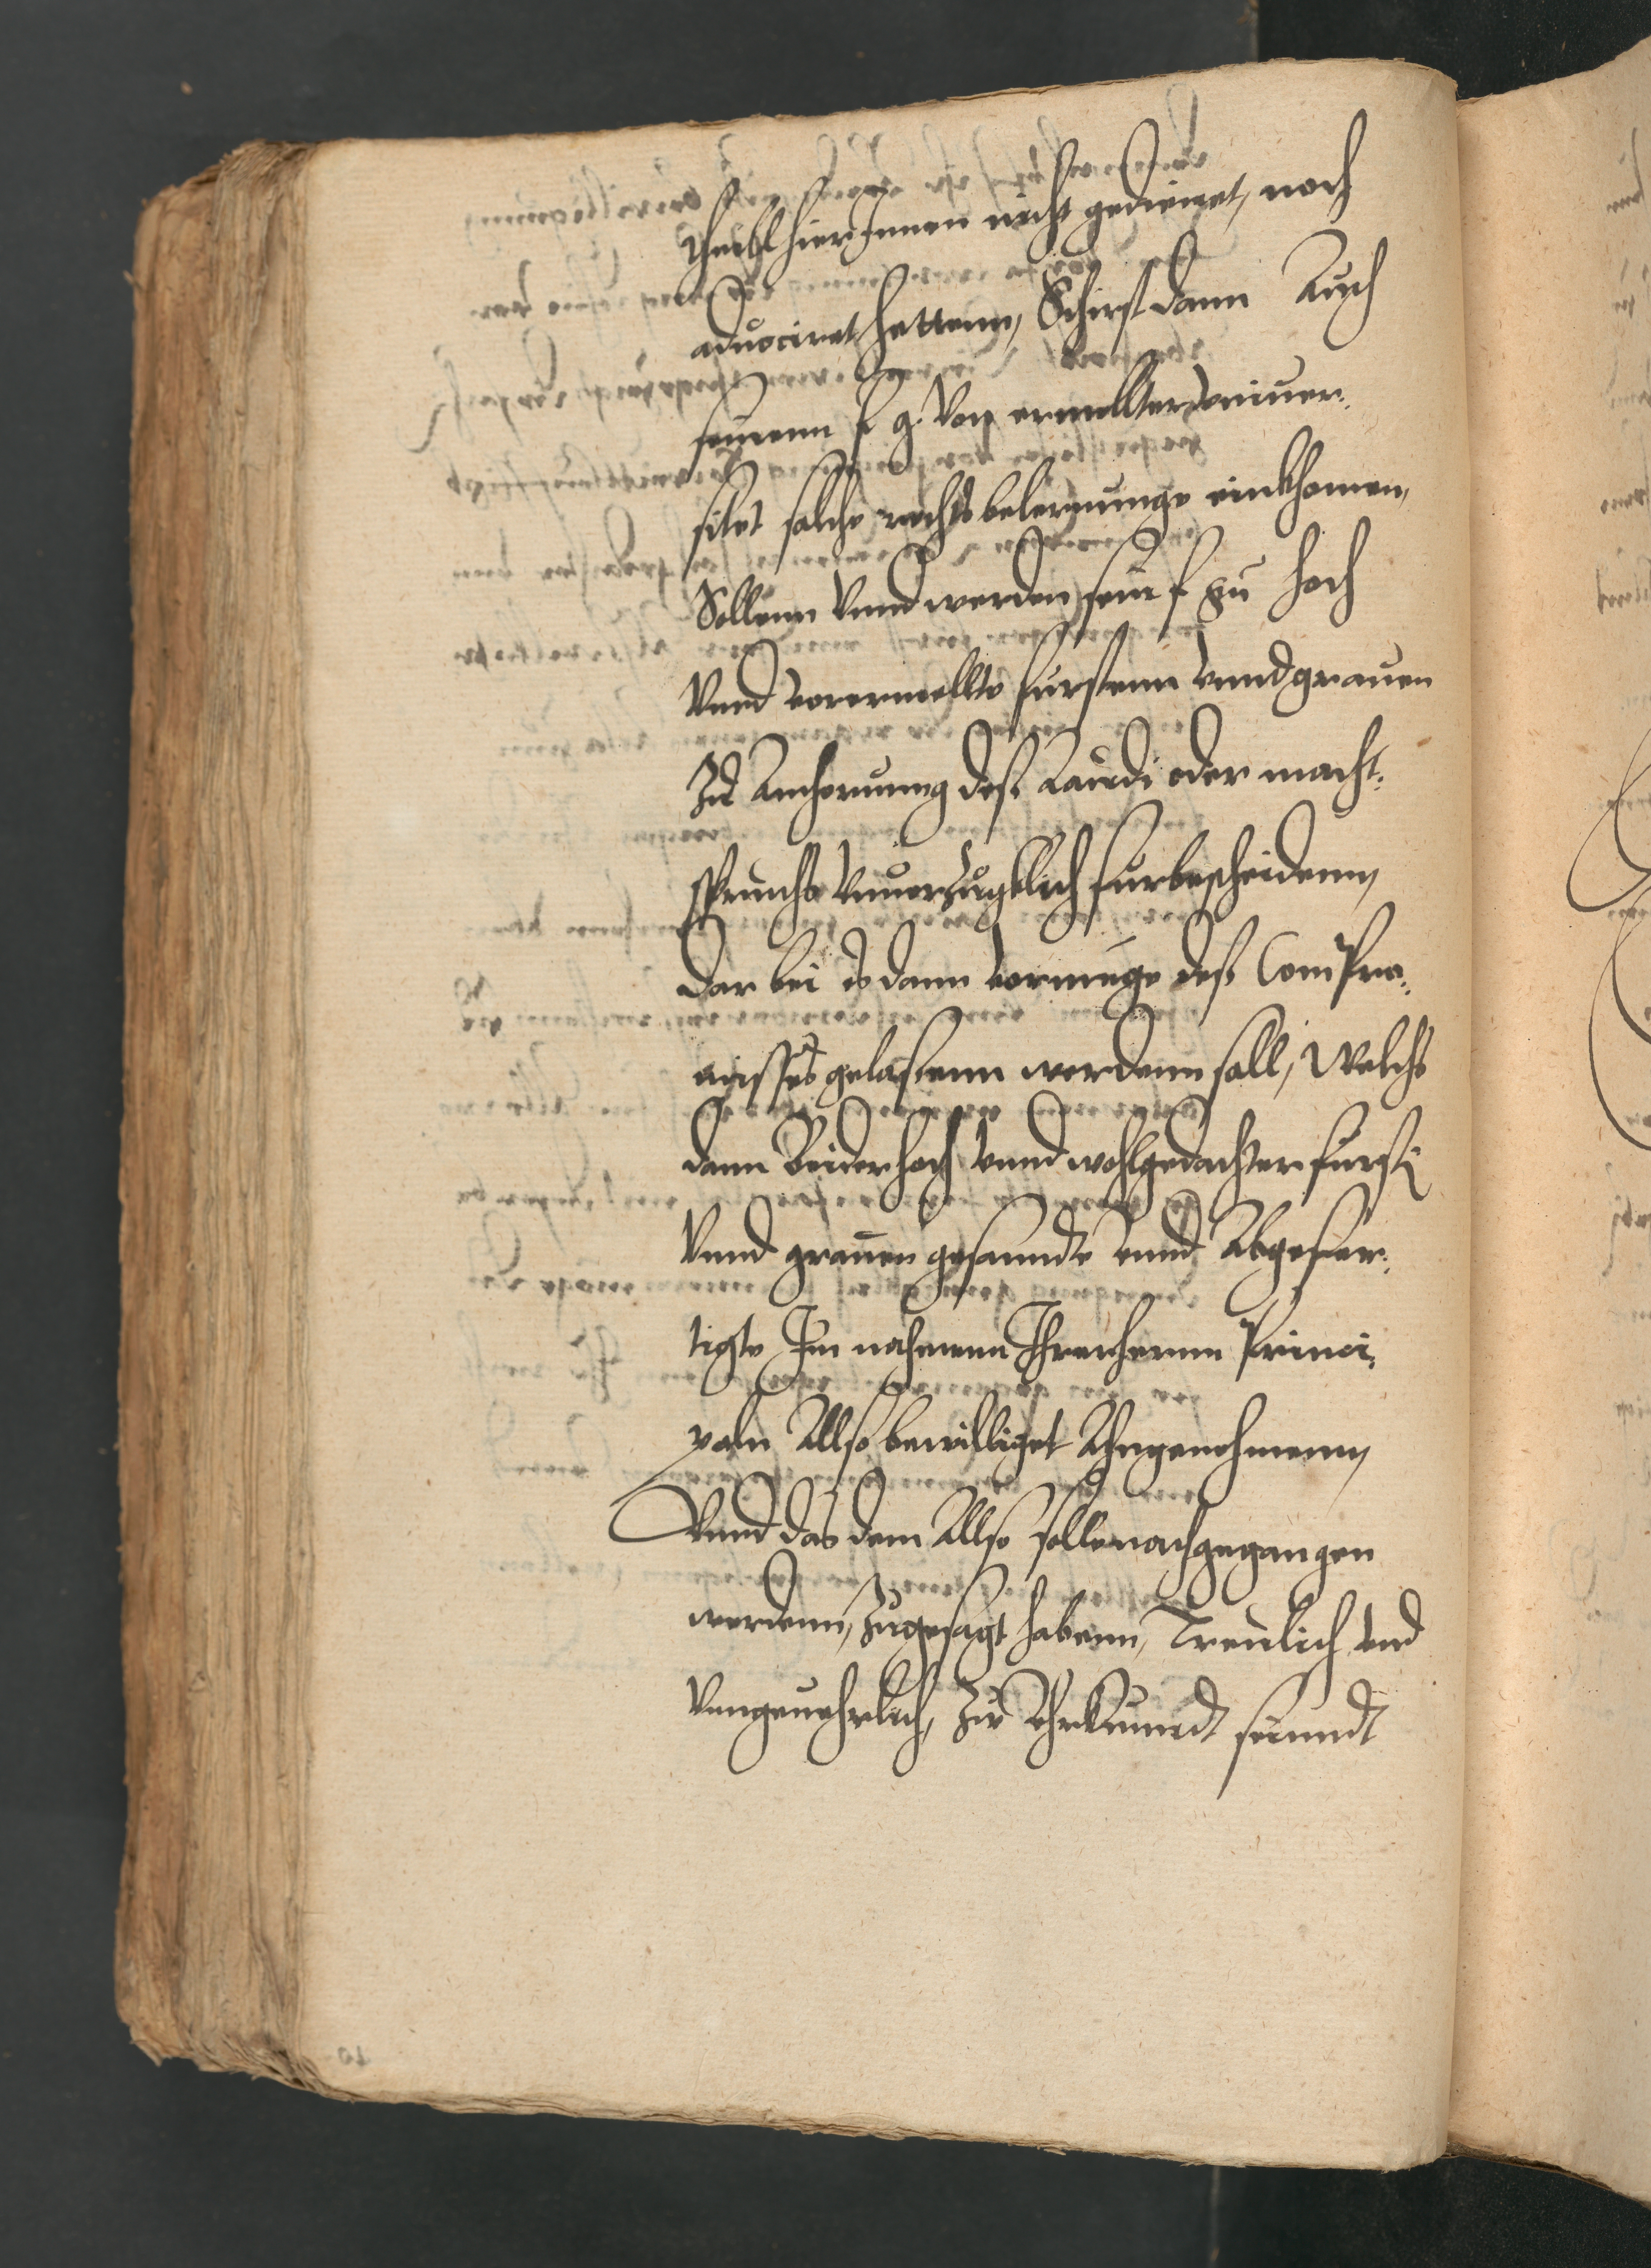 theill hierInnen nicht gedienet, noch
aduociret hettenn, Schirst dann Auch
seinenn f g. Von ermelter vniuer-
sitet solche rechts belernunge einkhomen,
Sollenn Vnnd werden sein f g hoch
Vnnd vorermelte furstenn vnnd grauen
Zu Anhorunng deß Laudi oder macht-
spruchs Vnuerzuglich furbescheidenn,
Dar bei es dann vermuge deß Compro-
misses gelassenn werdenn soll, Welchs
dann Beider hoch vnnd wohlgedachter furst
Vnnd grauen gesanndte vnnd Abgefer-
tigte Im nahmenn Ihrer herrn Princi-
paln Allso bewilliget Angenohmenn,
Vnnd das dem Allso solle nachgegangen
werdenn, Zugesagt habenn, Treulich vnd
Vngeuehrlich, Zu Uhrkunndt seinndt